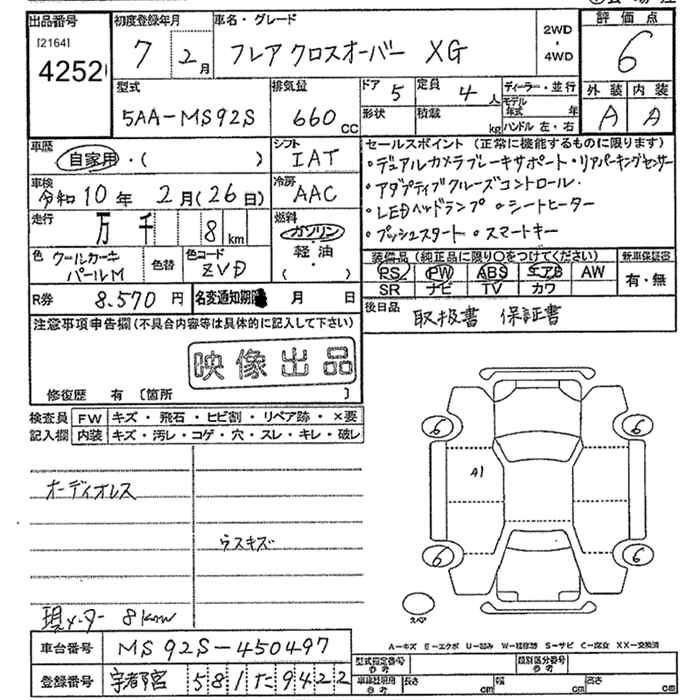 出品番号
[2164]
4252
初度登録年月
7 2月
車名・グレード
フレア クロスオーバー XG
2WD・4WD
評価点
6
外装 内装
A A
型式
5AA-MS92S
排気量
660cc
ドア 5
定員 4人
形状
積載 kg
ディーラー・並行
モデル年式 年
ハンドル 左・右
車歴
自家用・( )
シフト
IAT
セールスポイント (正常に機能するものに限ります)
・デュアルカメラブレーキサポート・リアパーキングセンサー
・アダプティブクルーズコントロール
・LEDヘッドランプ ・シートヒーター
・プッシュスタート ・スマートキー
車検
令和 10年 2月(26日)
冷房
AAC
走行
万 千 8km
燃料
ガソリン・軽油・( )
色
クールカーキパールM
色替
色コード
ZVD
装備品 (純正品に限り○をつけてください)
PS PW ABS エアB AW
SR ナビ TV カワ
新車保証書
有・無
R券 8,570円
名変通知期限 月 日
後日品
取扱書 保証書
注意事項申告欄(不具合内容等は具体的に記入して下さい)
映像出品
修復歴 有 [箇所 ]
検査員記入欄
FW キズ・飛石・ヒビ割・リペア跡・×要
内装 キズ・汚レ・コゲ・穴・スレ・キレ・破レ
オーディオレス
ウスキズ
現メーター 8km
6 6
A1
6 6
スペア
A-キズ E-エクボ U-凹み W-補修跡 S-サビ C-腐食 XX-交換済
車台番号 MS92S-450497
登録番号 宇都宮 581 た 9422
型式指定番号 参考
類別区分番号 参考
長さ cm
幅 cm
高さ cm